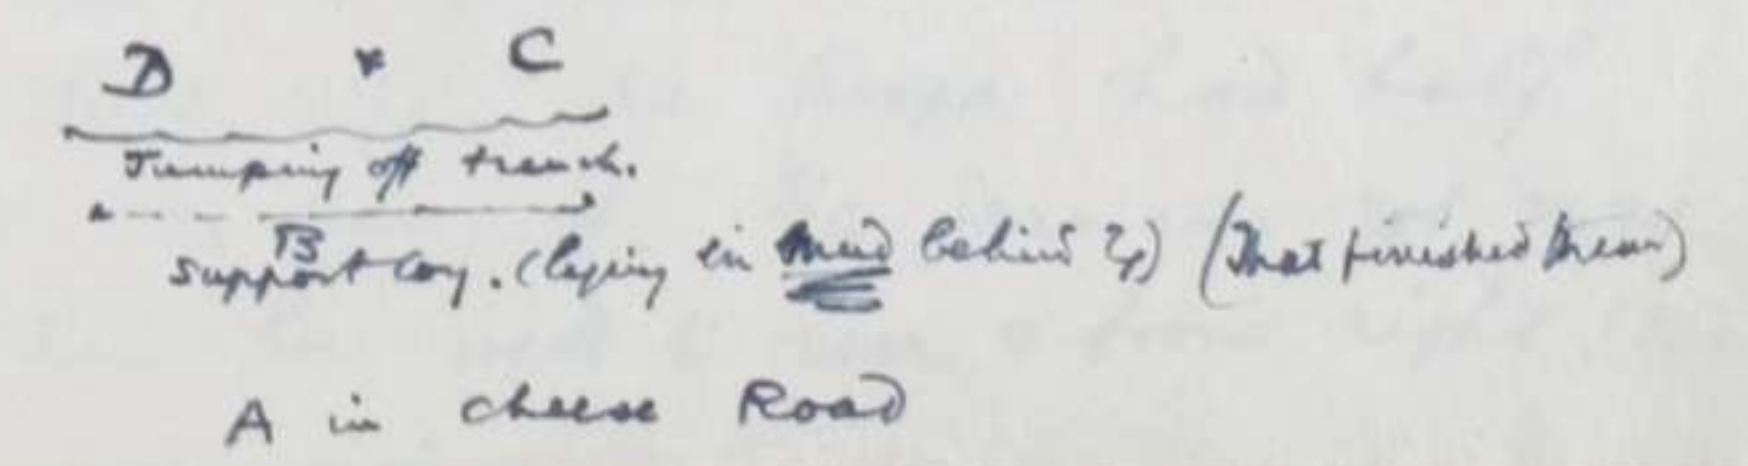 D + C
Jumping off trench.
B
support coy. (laying in mud behind it) (That finished them)
A in cheese Road